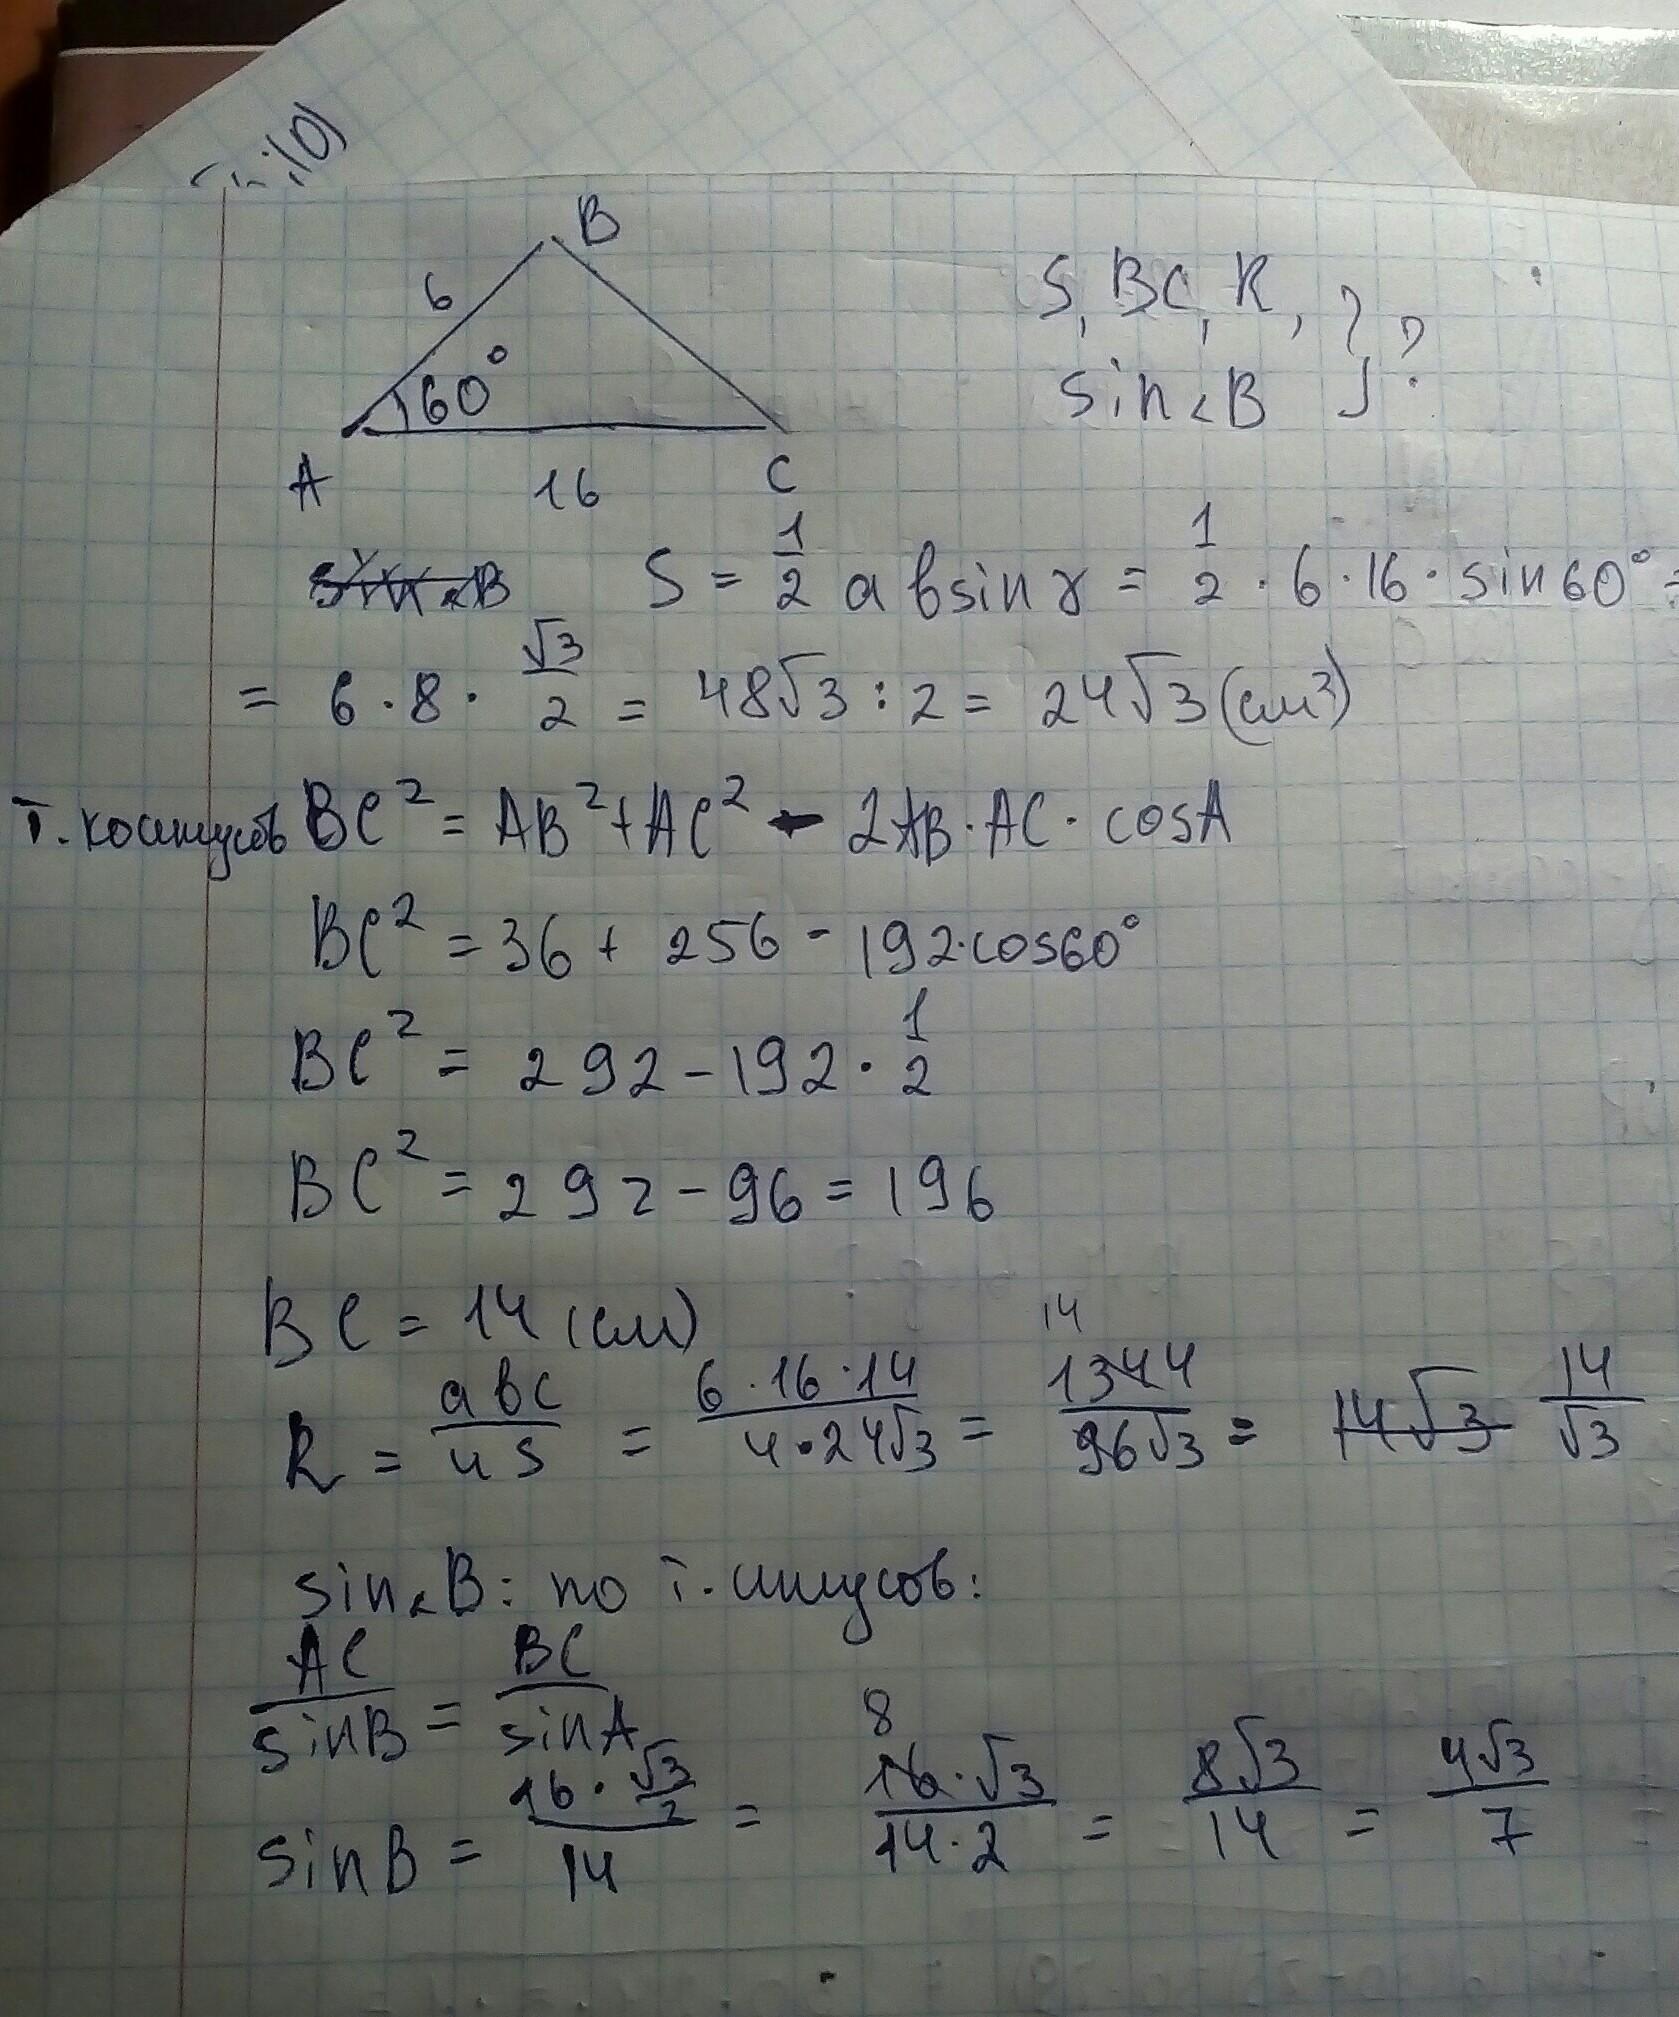 B
6
60°
A 16 C
S, BC, R, } ?
sin∠B
S = 1/2 a b sin γ = 1/2 · 6 · 16 · sin60° =
= 6 · 8 · √3/2 = 48√3 : 2 = 24√3 (см²)
Т. косинусов BC² = AB² + AC² - 2AB · AC · cosA
BC² = 36 + 256 - 192 · cos60°
BC² = 292 - 192 · 1/2
BC² = 292 - 96 = 196
BC = 14 (см)
R = abc/4S = 6 · 16 · 14/4 · 24√3 = 1344/96√3 14 = 14√3 14/√3
sin∠B: по т. синусов:
AC/sinB = BC/sinA
sinB = 16 · √3/2/14 = 16 · √3/14 · 2 8 = 8√3/14 = 4√3/7